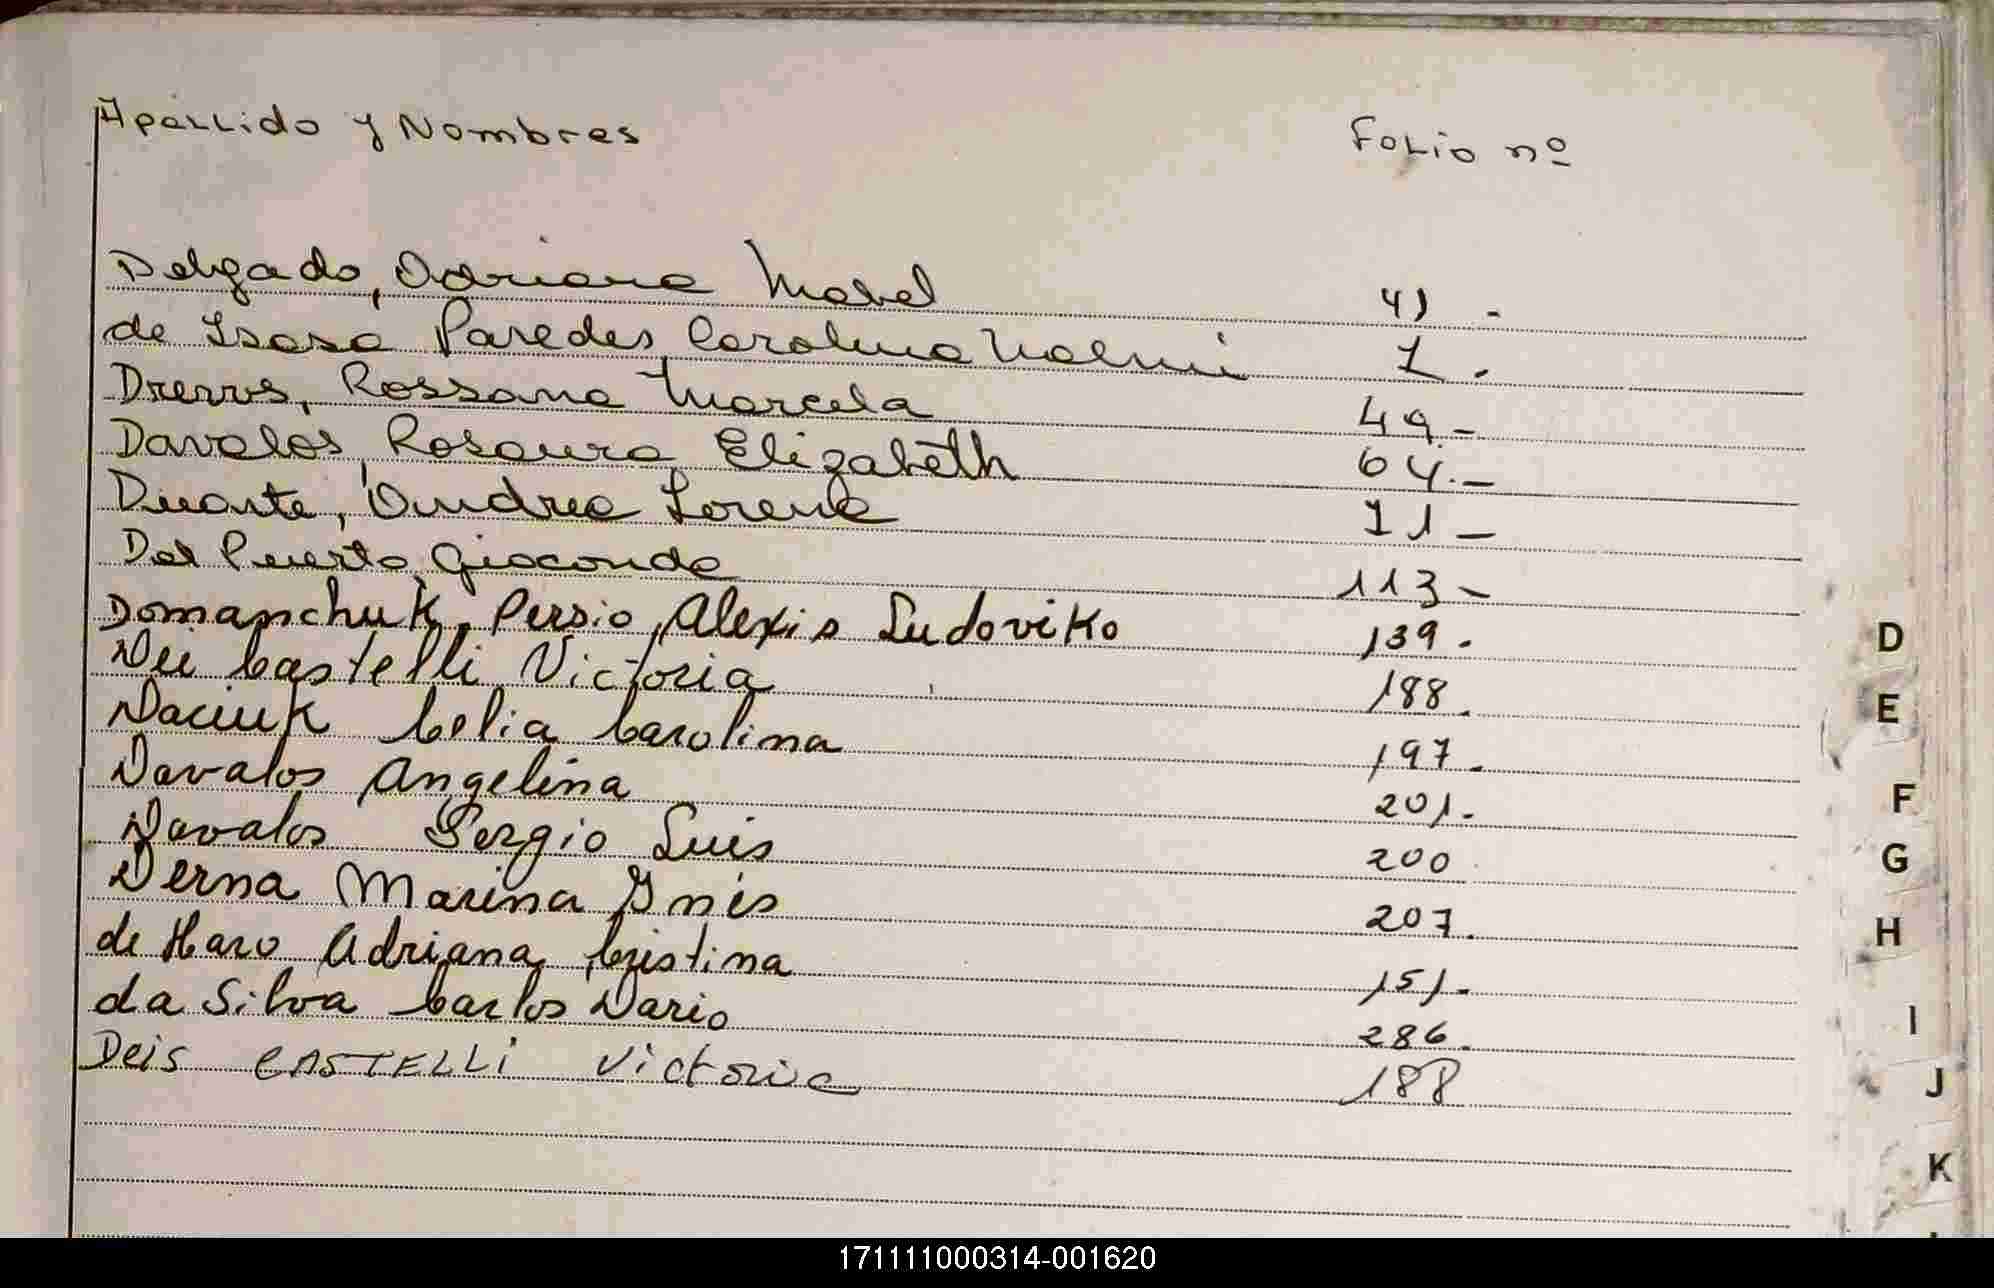 Apellido y Nombres Folio nº
Delgado, Adriana Mabel 41 -
de Isasa Paredes, Carolina Noemi 1.
Drews, Rossana Marcela 49.-
Davalos, Rosaura Elizabeth 64.-
Duarte, Andrea Lorena 71 -
Del Puerto, Gioconda 113 -
Domanchuk, Persio, Alexis Ludoviko 139.
Castelli Victoria 188.
Daciuk Celia Carolina 197.
Davalos Angelina 201.-
Davalos Sergio Luis 200
Derna Marina Inés 207.
de Haro Adriana Cristina 151.-
da Silva Carlos Dario 286.
Deis CASTELLI Victoria 188
D
E
F
G
H
I
J
K
171111000314-001620